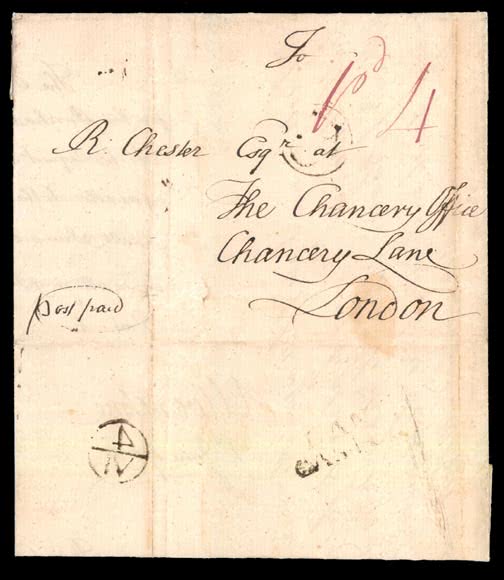 To
pd 4
R. Chester Esqr. at
The Chancery Office
Chancery Lane
London
post paid
4
N